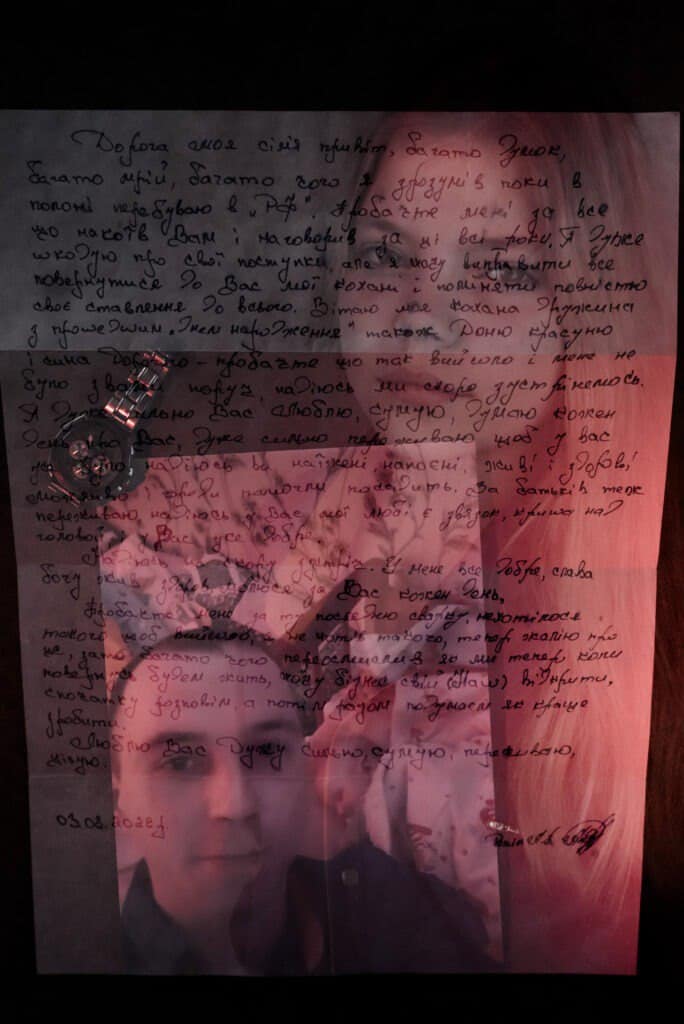 Дорога моя сімя привіт, багато думок,
багато мрій, багато чого я зрозумів поки в
полоні перебуваю в „РФ". Пробачте мені за все
що накоїв Вам і наговорив за ці всі роки. Я дуже
шкодую про свої поступки, але я хочу виправити все
повернутися до Вас мої кохані і поміняти повністю
своє ставлення до всього. Вітаю моя кохана дружина
з прошедшим „Днем народження" також Доню красуню
і сина дорогого - пробачте що так вийшло і мене не
було з вами поруч, надіюсь ми скоро зустрінемось.
Я дуже сильно Вас люблю, сумую, думаю кожен
день про Вас, дуже сильно переживаю щоб у вас
надіюсь ви наїжені, напоєні, живі і здорові,
можливо і допомогли посадить. За батьків теж
переживаю, надіюсь у Вас мої любі є звязок, криша над
головой і у Вас усе добре.
Надіюсь на скору зустріч. У мене все добре, слава
богу жив здоров молюся за Вас кожен день,
Пробачте мене за ту последню сварку, нехотілося
такого щоб вийшло, я не хотів такого, тепер жалію про
це, зато багато чого переосмислив як ми тепер коли
повернусь будем жить, хочу бізнес свій (Наш) відкрити,
спочатку розповім, а потім разом подумаєм як краще
зробити.
Люблю Вас Дужу сильно, сумую, переживаю,
цілую.